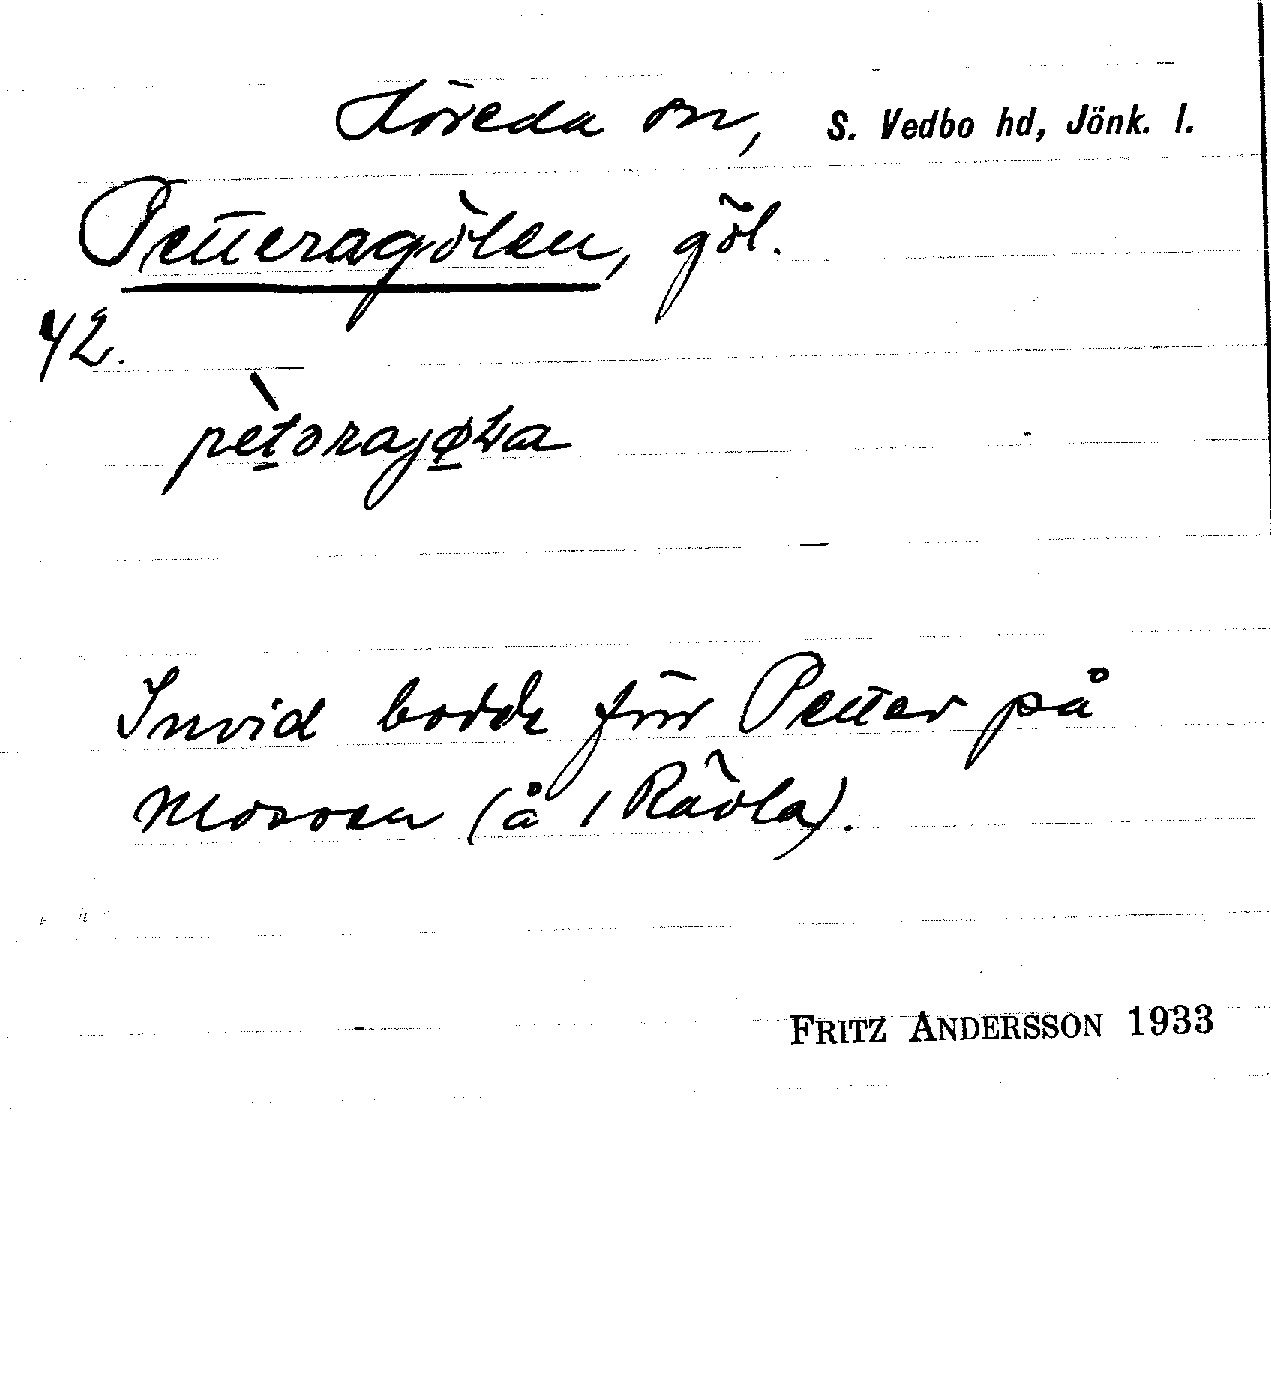 Höreda sn, S. Vedbo hd, Jönk. l.
Petteragölen, göl.
42.
pètərajøɫa
Invid bodde förr Petter på
Mossen (å 1 Rävla).
FRITZ ANDERSSON 1933